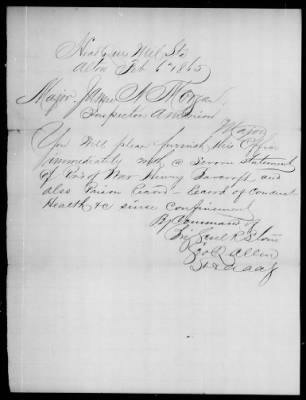 Head Qrs Mil
Alton Feb 6th 1865
Major James N Morgan
Inspector
Major
You will please furnish this Office
immediately with a Sworn Statement
of Pris of War Henry and
also Prison Record - Record of Conduct
Health &c since confinement
By Command of
Brig Genl
Allen